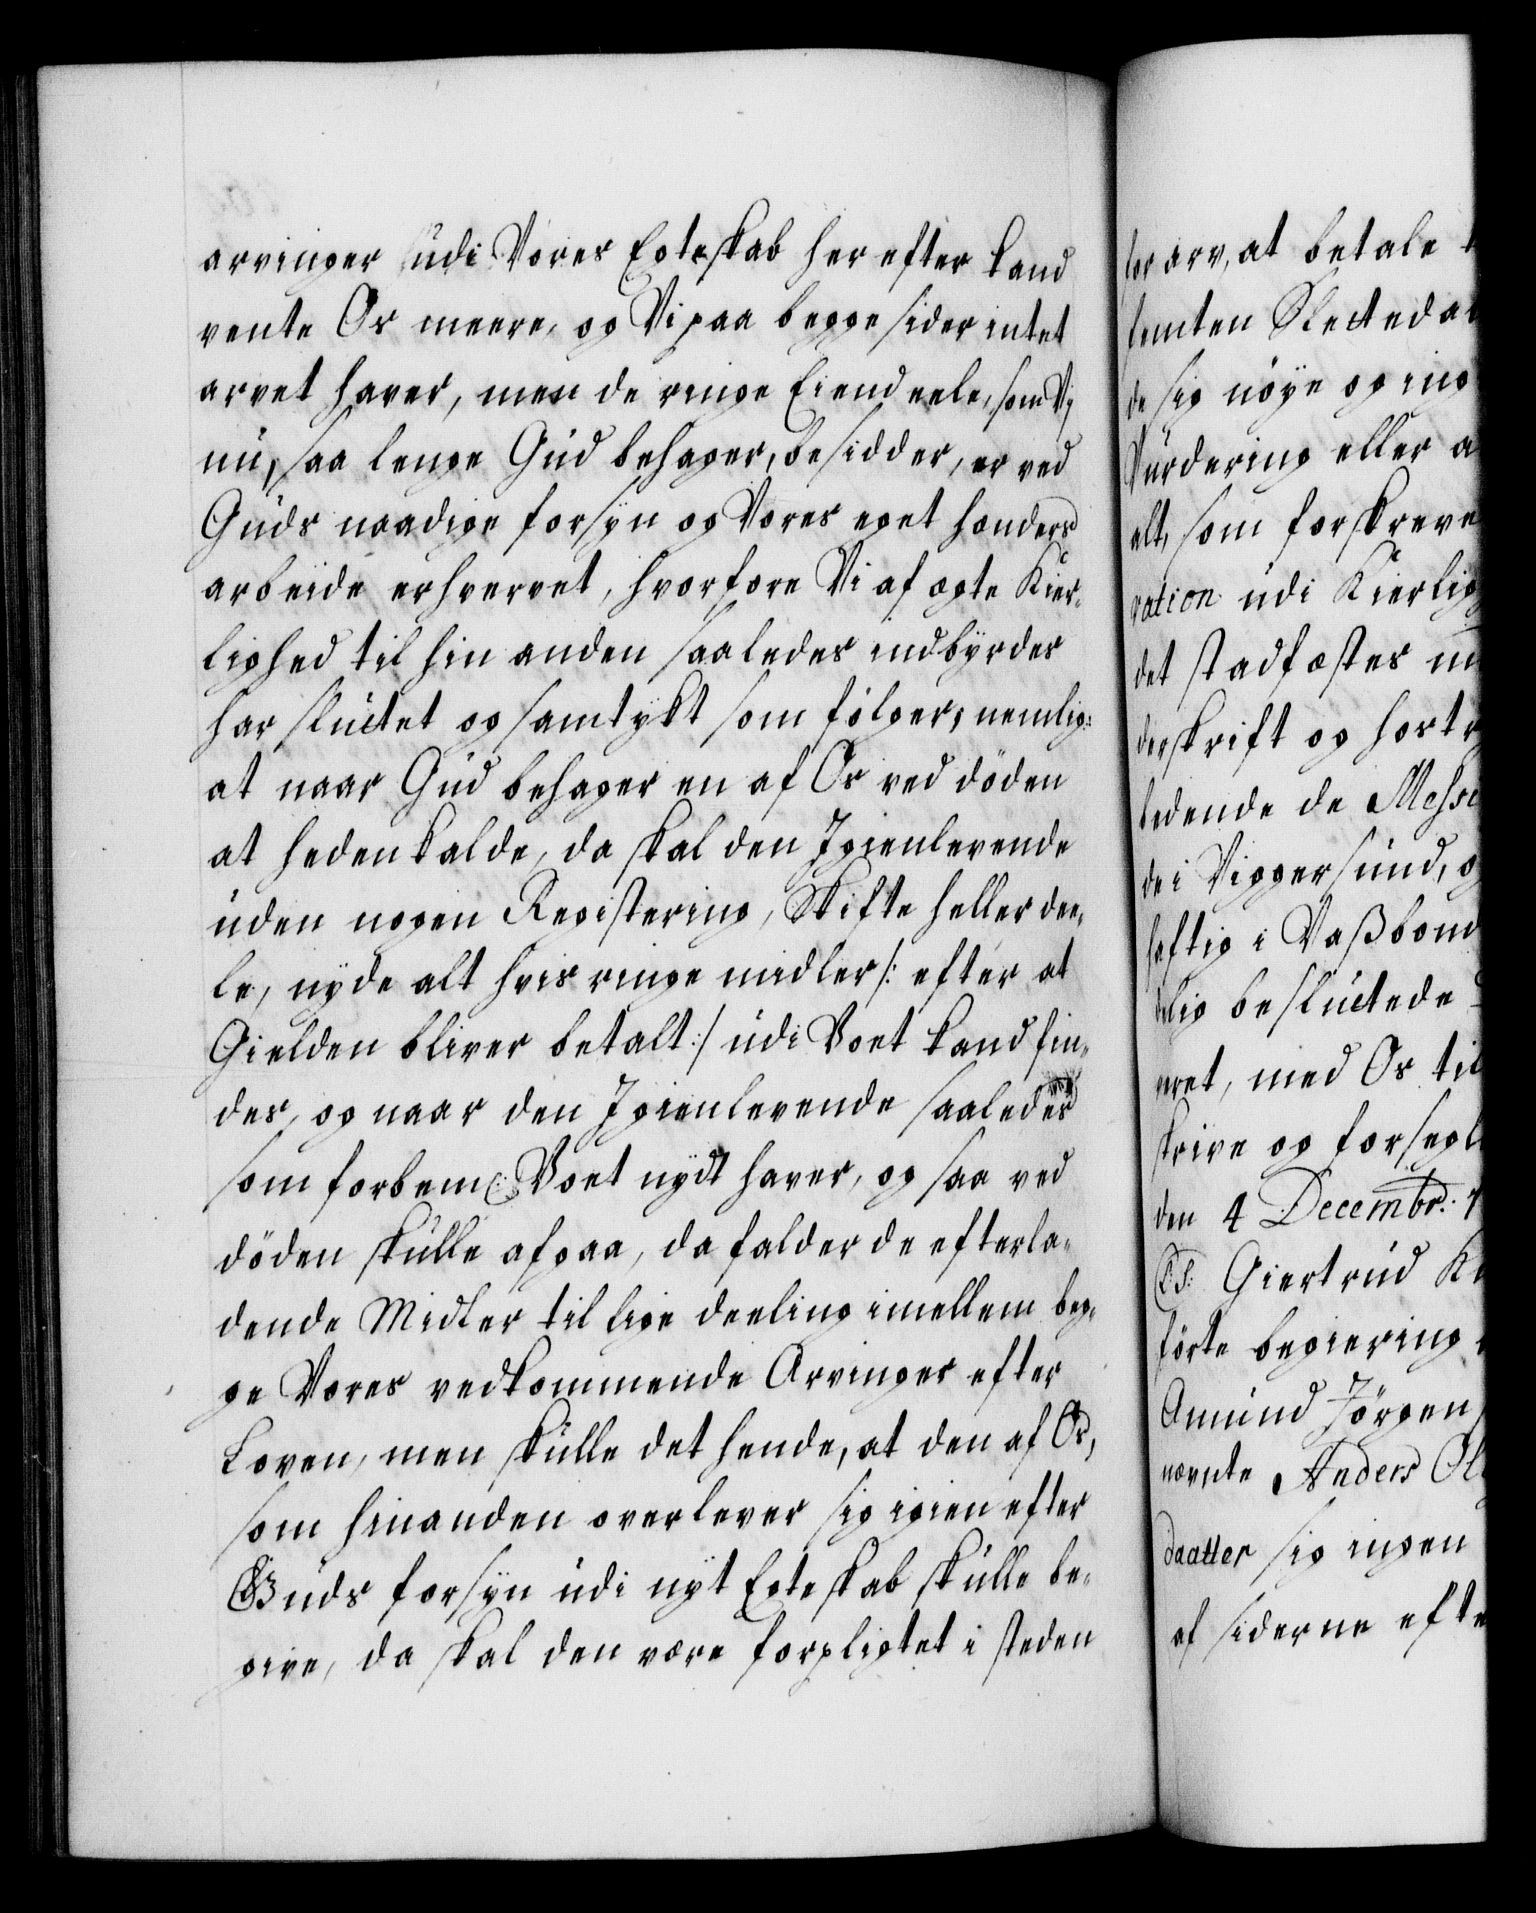 arvinger udi Vores Egteskab her efter kand
vente Os meere, og Vi paa begge sider intet
arvet haver, men de ringe Eiendeele, som Vi
nu, saa lenge Gud behager, besidder, er ved
Guds naadige forsyn og Vores eget honders
arbeide erhvervet, hvorfore Vi af ægte Kier-
lighed til hin anden saaledes indbyrdes
har sluttet og samtykt som følger, nemlig:
at naar Gud behager en af Os ved döden
at hedenkalde, da skal den Igienlevende
uden nogen Registering, Skifte heller dee-
le, nyde alt hvis ringe midler /: efter at
Gielden bliver betalt :/ udi Boet kand fin-
des, og naar den Igienlevende saaledes
som forbem: Boet nydt haver, og saa ved
döden skulle afgaa, da falder de efterla-
dende Midler til lige deeling imellem beg-
ge Vores vedkommende Arvinger efter
Loven, men skulle det hende, at den af Os,
som hinanden overlever sig igien efter
Guds forsyn udi nyt Egteskab skulle be-
give, da skal den være forpligtet i steden
for arv, at betale
femten Slectedal
de sig nöye og ing
Vurdering eller a
alt, som forskreve
ration udi Kierlig
det stadfæstes
derskrift og hostr
ledende de Messe
de i Viggersund, o
haftig i Vaßbond
delig besluttede
eret, med Os til
skrive og forsegl
den 4 Decembr:
L:S: Giertrud K
förte begiering
Amund Jörgen
nevnte Anders Ol
daatter sig ingen
af siderne efte